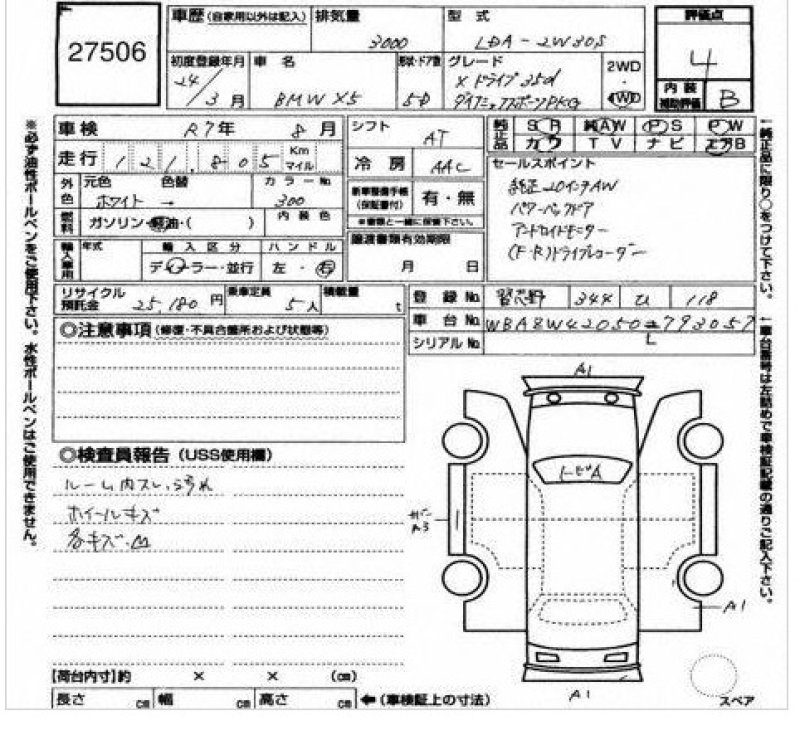 27506
車歴 (自家用以外は記入) 排気量 3000 型式 LDA-ZW30S 評価点 4
初度登録年月 24/3月 車名 BMW X5 形状・ドア数 5D グレード Xドライブ35d ダイナミックスポーツPKG 2WD・4WD 内装補助評価 B
車検 R7年 8月 シフト AT 純正品 SR 純AW PS PW
カワ TV ナビ エアB
走行 121,805 Km マイル 冷房 AAC セールスポイント
外色 元色 ホワイト 色替 → カラーNo 300 新車整備手帳 (保証書付) 有・無 純正20インチAW
燃料 ガソリン・軽油・( ) 内装色 ※書類と一緒に保管下さい。 パワーバックドア
輸入車用 年式 輸入区分 ディーラー・並行 ハンドル 左・右 譲渡書類有効期限 月 日 アンドロイドモニター
(F・R)ドライブレコーダー
リサイクル預託金 25,180円 乗車定員 5人 積載量 t 登録No 習志野 344 ひ 118
車台No WBAZW42050
シリアルNo L
◎注意事項 (修復・不具合箇所および状態等)
◎検査員報告 (USS使用欄)
ルーム内スレ、汚れ
ホイールキズ
各キズ・凹
A1
トビA
A3
A1
A1
スペア
【荷台内寸】約 × × (cm)
長さ cm 幅 cm 高さ cm ←(車検証上の寸法)
※必ず油性ボールペンをご使用下さい。水性ボールペンはご使用できません。
←純正品に限り○をつけて下さい。
←車台番号は左詰めで車検証記載の通りご記入下さい。